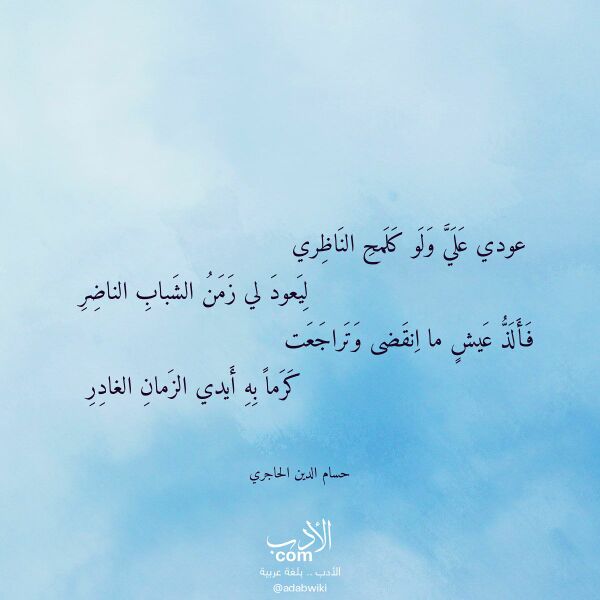 عودي عَلَيَّ وَلَو كَلَمحِ النَاظِري
لِيَعودَ لي زَمَنُ الشَبابِ الناضِرِ
فَأَلَذُّ عَيشٍ ما اِنقَضى وَتَراجَعَت
كَرَماً بِهِ أَيدي الزَمانِ الغادِرِ
حسام الدين الحاجري
الأدب
com
الأدب .. بلغة عربية
@adabwiki